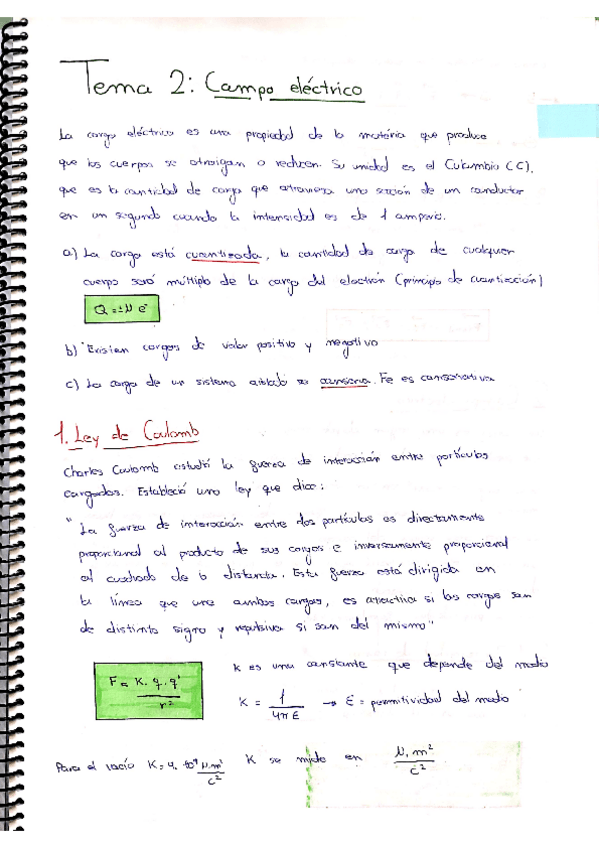 Tema 2: Campo eléctrico
La carga eléctrica es una propiedad de la materia que produce
que los cuerpos se atraigan o reducen. Su unidad es el Culombio (C),
que es la cantidad de carga que atraviesa una sección de un conductor
en un segundo cuando la intensidad es de 1 amperio.
a) La carga está cuantizada, la cantidad de carga de cualquier
cuerpo será múltiplo de la carga del electrón (principio de cuantización)
Q = ±N e⁻
b) Existen cargas de valor positivo y negativo
c) La carga de un sistema aislado se conserva. Fe es conservativa
1. Ley de Coulomb
Charles Coulomb estudió la fuerza de interacción entre partículas
cargadas. Estableció una ley que dice:
"La fuerza de interacción entre dos partículas es directamente
proporcional al producto de sus cargas e inversamente proporcional
al cuadrado de la distancia. Esta fuerza está dirigida en
la línea que une ambas cargas, es atractiva si las cargas son
de distinto signo y repulsiva si son del mismo"
F = K · q · q' / r²
K es una constante que depende del medio
K = 1 / 4πε → ε = permitividad del medio
Para el vacío K = 9 · 10⁹ N·m² / C² K se mide en N·m² / C²